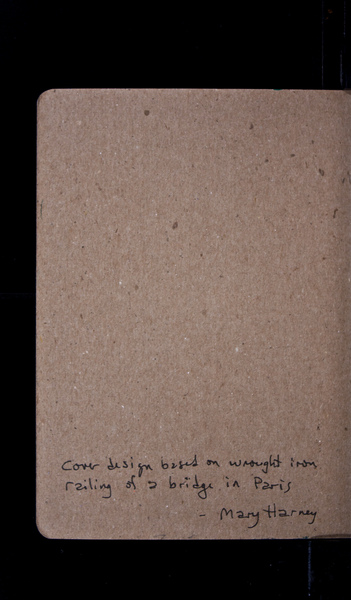 Cover design based on wrought iron
railing of a bridge in Paris
- Mary Harney